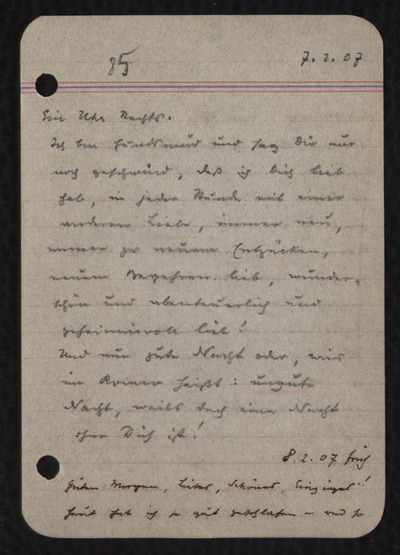 85
7.2.07
Ein Uhr Nachts.
Ich bin hundsmüd und sag Dir nur
noch geschwind, daß ich Dich lieb
hab, in jeder Stunde mit einer
anderen Liebe, immer neu,
immer zu neuem Entzücken,
neuem Begehren. lieb, wunder-
schön und abenteuerlich und
geheimnisvoll lieb!
Und nun gute Nacht oder, wie
im heißt: ungute
Nacht, weils doch eine Nacht
ohne Dich ist!
8.2.07 früh
Guten Morgen, Liebes, Schönes, Einziges!!
heut hab ich so gut geschlafen – und so